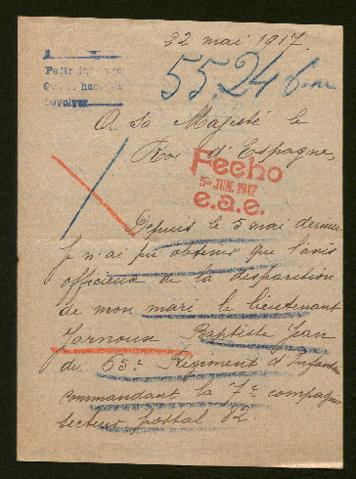 22 mai 1917.
A
Pedir informes
Devolver
5524
A Sa Majesté le
Roi d'Espagne,
Fecho
5 JUN. 1917
e.a.e.
Depuis le 5 mai dernier
Je n'ai pu obtenir que l'avis
officieux de la disparition
de mon mari le lieutenant
Jarnoux Baptiste Jean
du 65e Régiment d'Infanterie
commandant la 7e compagnie
secteur postal 82